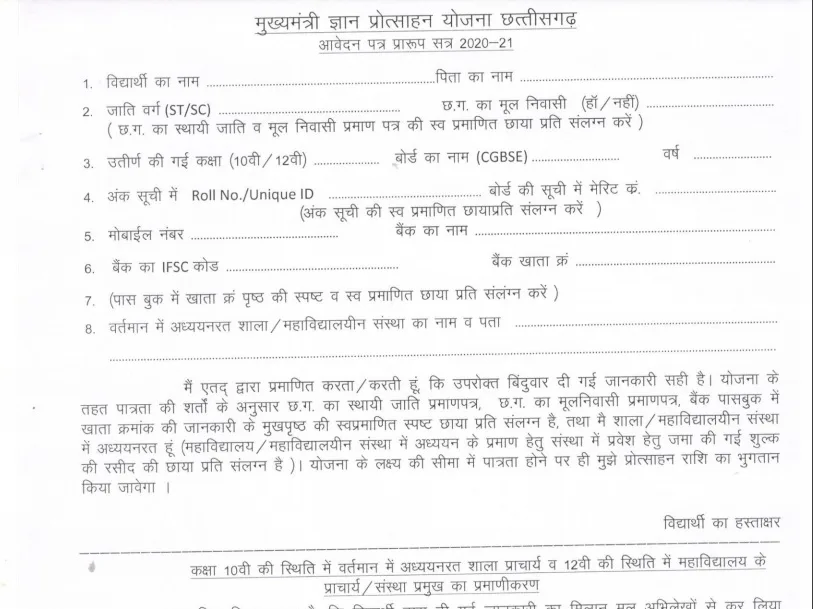 मुख्यमंत्री ज्ञान प्रोत्साहन योजना छत्तीसगढ़
आवेदन पत्र प्रारूप सत्र 2020–21
1. विद्यार्थी का नाम ........................................ पिता का नाम ........................................
2. जाति वर्ग (ST/SC) ........................................ छ.ग. का मूल निवासी (हॉ/नहीं) ........................................
( छ.ग. का स्थायी जाति व मूल निवासी प्रमाण पत्र की स्व प्रमाणित छाया प्रति संलग्न करें )
3. उतीर्ण की गई कक्षा (10वी/12वी) .................. बोर्ड का नाम (CGBSE) ........................ वर्ष .....................
4. अंक सूची में Roll No./Unique ID ........................................ बोर्ड की सूची में मेरिट क्रं. ..............................
(अंक सूची की स्व प्रमाणित छायाप्रति संलग्न करें )
5. मोबाईल नंबर ........................................ बैंक का नाम ........................................
6. बैंक का IFSC कोड ........................................ बैंक खाता क्रं ........................................
7. (पास बुक में खाता क्रं पृष्ठ की स्पष्ट व स्व प्रमाणित छाया प्रति संलंग्न करें )
8. वर्तमान में अध्ययनरत शाला/महाविद्यालयीन संस्था का नाम व पता ........................................
................................................................................
मैं एतद् द्वारा प्रमाणित करता/करती हूं, कि उपरोक्त बिंदुवार दी गई जानकारी सही है। योजना के
तहत पात्रता की शर्तो के अनुसार छ.ग. का स्थायी जाति प्रमाणपत्र, छ.ग. का मूलनिवासी प्रमाणपत्र, बैंक पासबुक में
खाता क्रमांक की जानकारी के मुखपृष्ठ की स्वप्रमाणित स्पष्ट छाया प्रति संलग्न है, तथा मै शाला/महाविद्यालयीन संस्था
में अध्ययनरत हूं (महाविद्यालय/महाविद्यालयीन संस्था में अध्ययन के प्रमाण हेतु संस्था में प्रवेश हेतु जमा की गई शुल्क
की रसीद की छाया प्रति संलग्न है )। योजना के लक्ष्य की सीमा में पात्रता होने पर ही मुझे प्रोत्साहन राशि का भुगतान
किया जावेगा ।
विद्यार्थी का हस्ताक्षर
कक्षा 10वी की स्थिति में वर्तमान में अध्ययनरत शाला प्राचार्य व 12वी की स्थिति में महाविद्यालय के
प्राचार्य/संस्था प्रमुख का प्रमाणीकरण